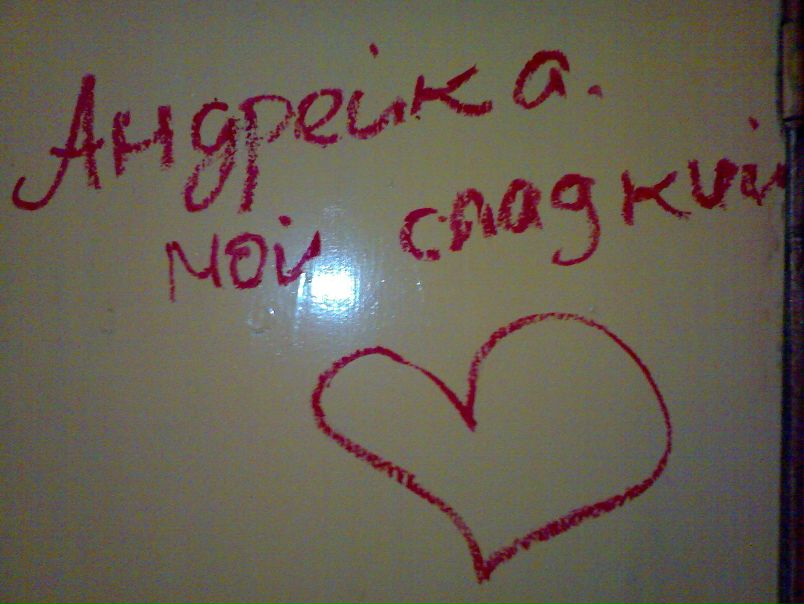 Андрейка.
мой сладкий